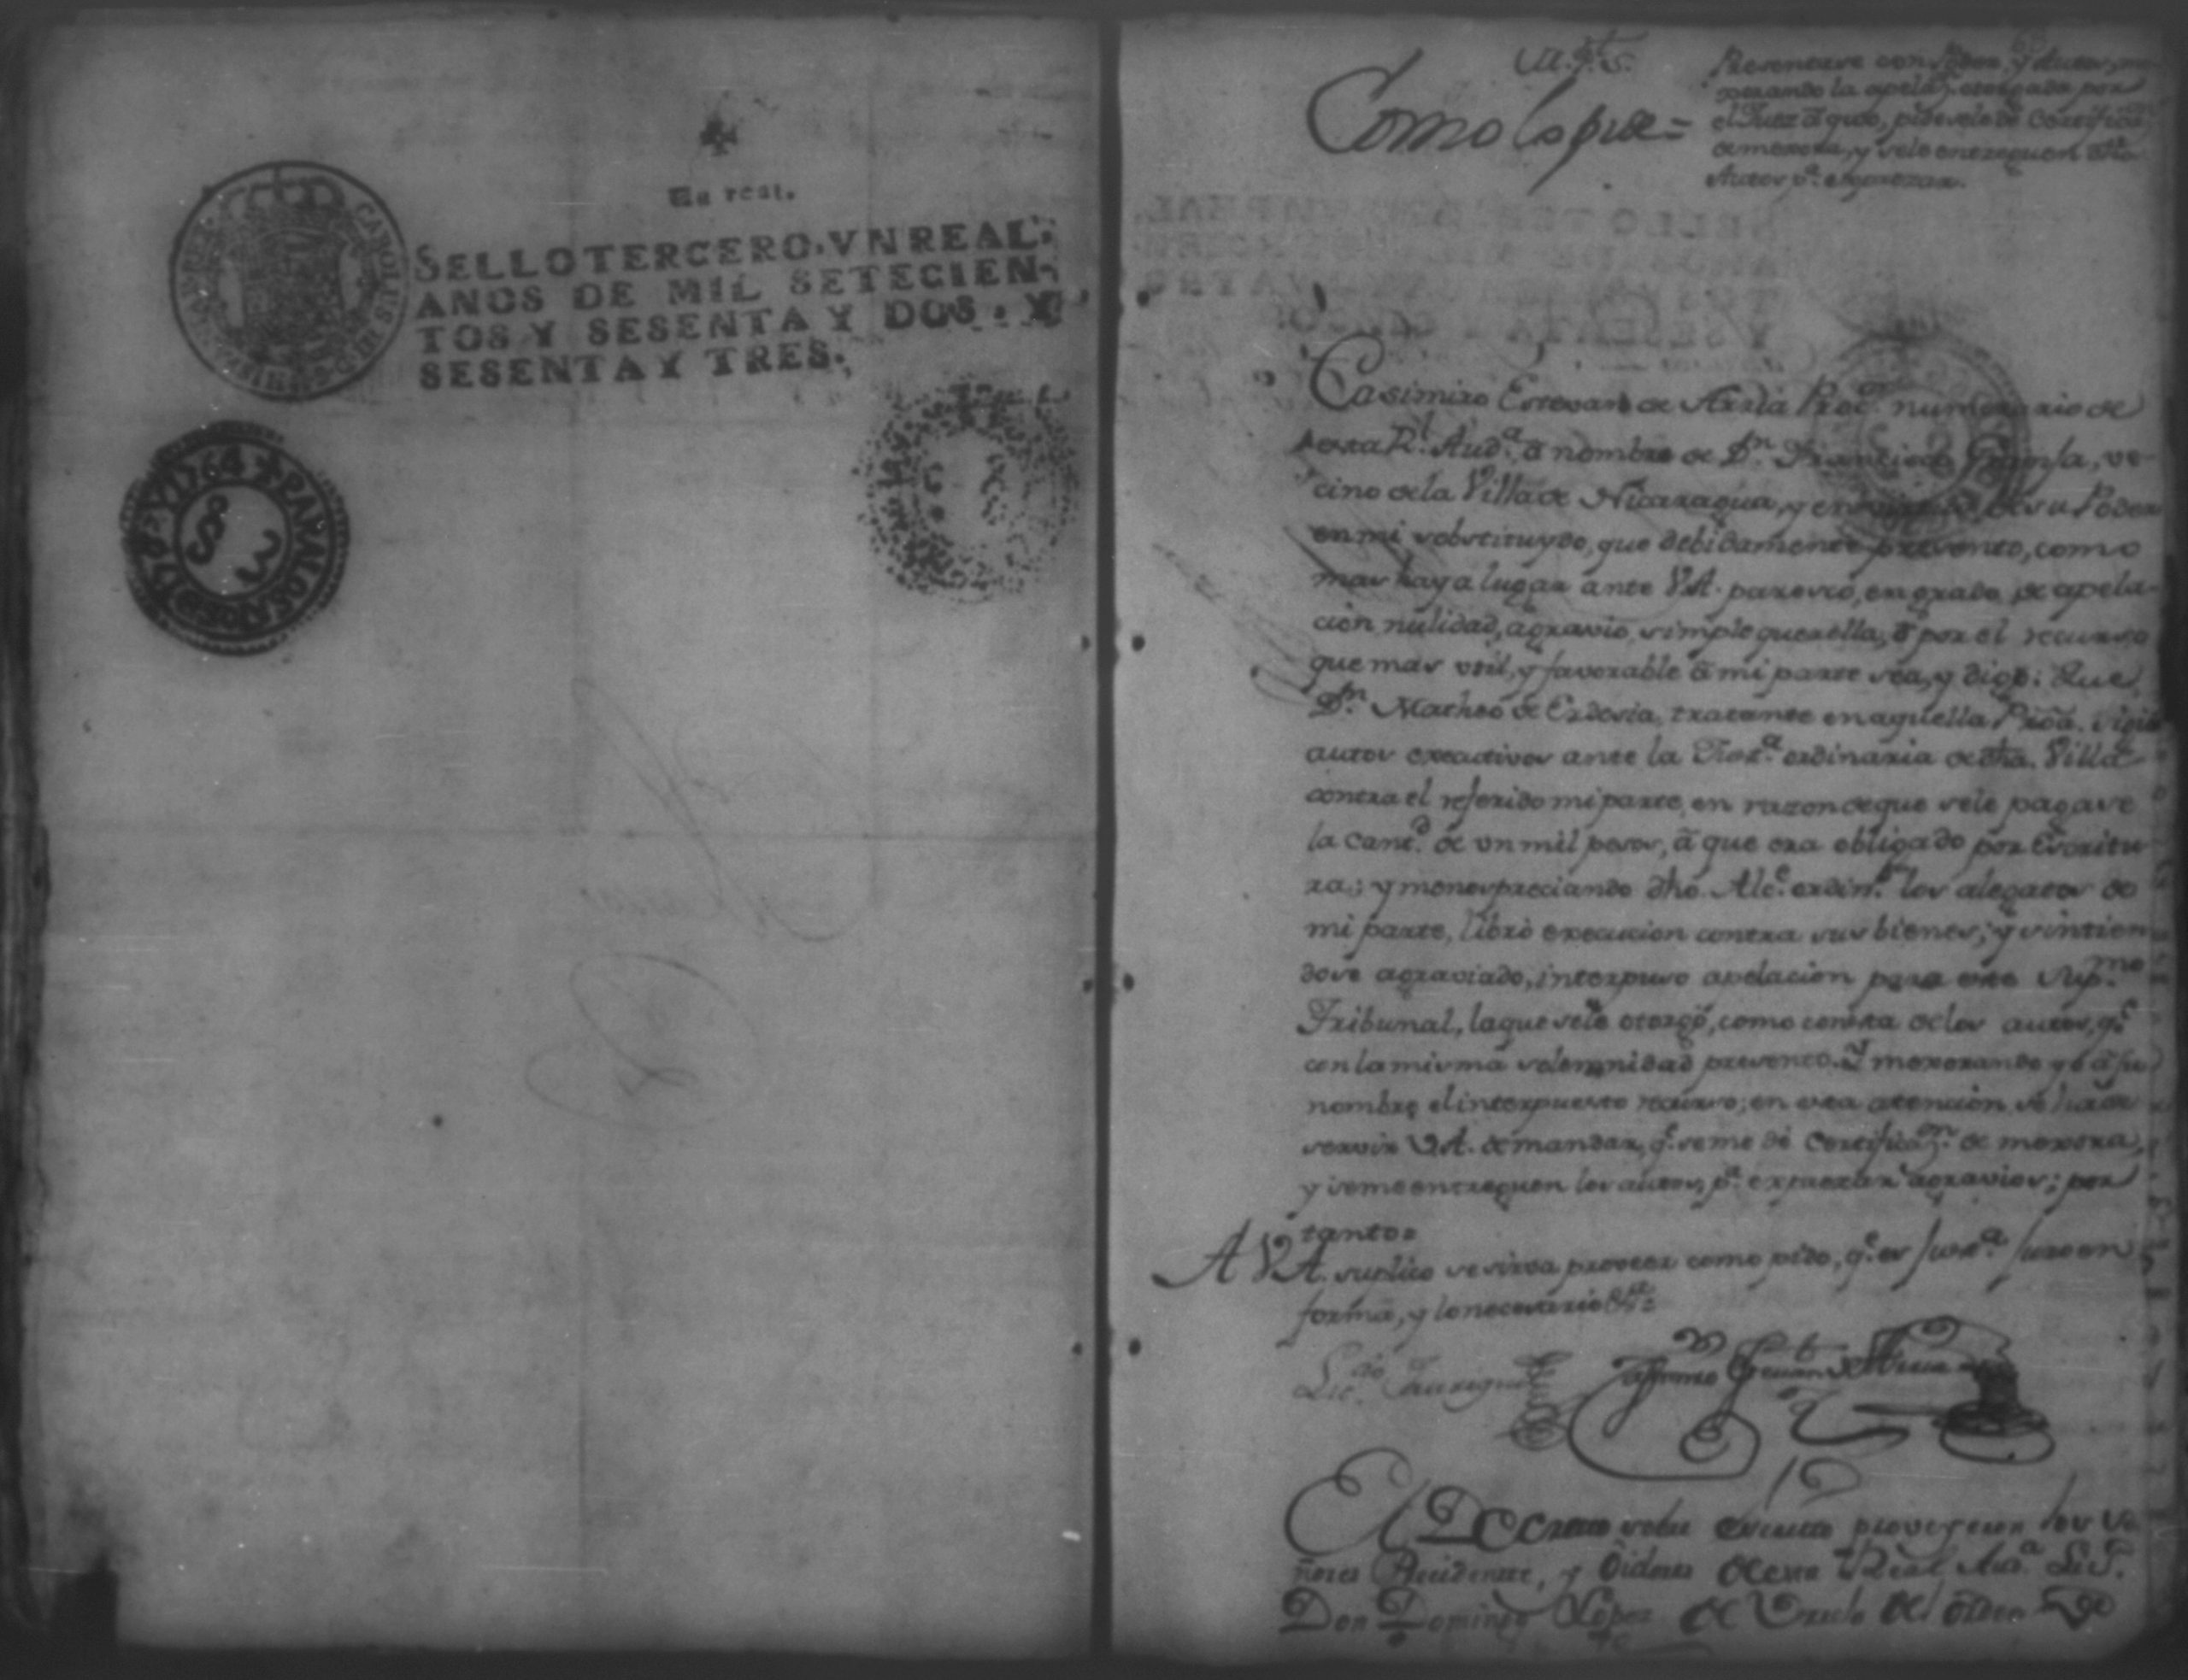 Un real.
SELLO TERCERO, VN REAL,
AÑOS DE MIL SETECIEN-
TOS Y SESENTA Y DOS, Y
SESENTA Y TRES.
CAROLUS III D. G. HISPANIAR REX
PARA LOS AÑOS DE 1763 Y 1764
S 3
M.P.S.
Como lo pide=
Presentase con Poder, y Autos, me-
xorando la apelaz.n otorgada por
el Juez à quo, pide se le dè Certificaz.n
de mexora, y se le entreguen dhõs
Autos p.a expressar.
Casimiro Estevan de Arria Proc.r numerario de
esta R.l Aud.a à nombre de D.n Francisco, ve-
cino de la Villa de Nicaragua, y en de su Poder
en mi sobstituydo, que debidamente presento, como
mas haya lugar ante V.A. paresco, en grado de apela-
cion nulidad, agravio, simple querella, ò por el recurso
que mas util, y favorable à mi parte sea, y digo: Que
D.n Matheo de Erdosia, tratante en aquella Proã. siguió
autos executivos ante la Just.a ordinaria de dhã. Villa
contra el referido mi parte, en razon de que se le pagase
la cant.d de un mil pesos, à que era obligado por Escritu
ra; y menospreciando dho. Alc.e ordin.o los alegatos de
mi parte, librò execucion contra sus bienes; y sintien
dose agraviado, interpuso apelacion para este Sup.mo
Tribunal, la que se le otorgò, como consta de los autos, q.e
con la misma solemnidad presento. Y mexorando yo à su
nombre el interpuesto recurso; en esta atencion se ha de
servir V.A. de mandar, q.e se me dè Certificaz.n de mexora,
y se me entreguen los autos, p.a expressar agravios; por
tanto=
A V.A. suplico se sirva proveer como pido, q.e es Just.a Juro en
forma, y lo necesario &.a=
Lic.do
Casimiro Estevan de Arria
El Decreto sobre escrito proveyeron los Se
ñores Presidente, y Oidores de esta Real Aud.a Lic.do
Don Domingo Lopez de Urrelo del orden de